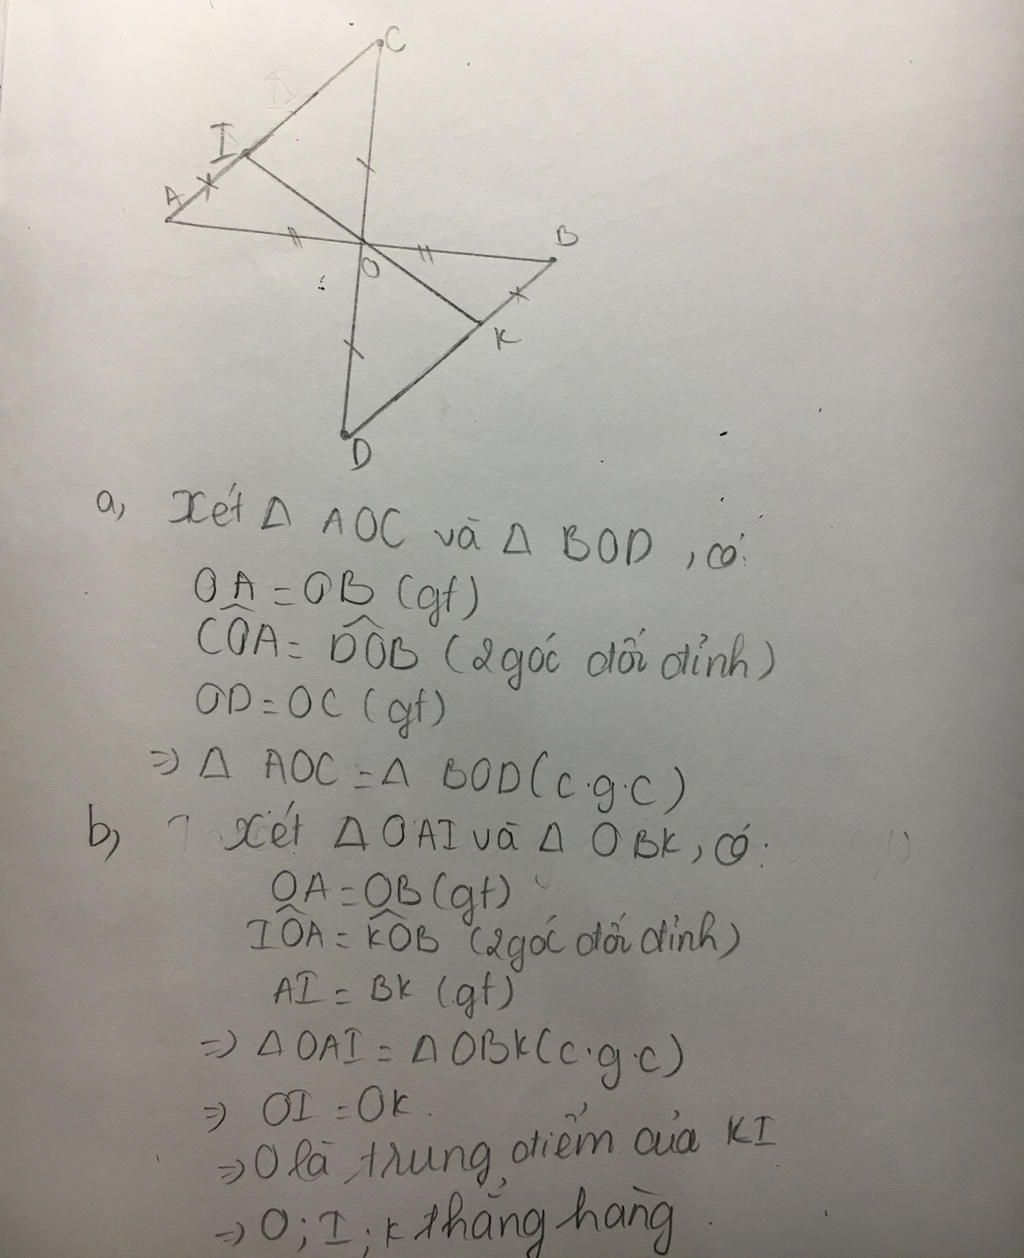 C
I
A
B
O
K
D
a, Xét Δ AOC và Δ BOD, có:
OA = OB (gt)
CÔA = DÔB (2 góc đối đỉnh)
OD = OC (gt)
=> Δ AOC = Δ BOD (c.g.c)
b, Xét Δ OAI và Δ OBK, có:
OA = OB (gt)
IÔA = KÔB (2 góc đối đỉnh)
AI = BK (gt)
=> Δ OAI = Δ OBK (c.g.c)
=> OI = OK.
=> O là trung điểm của KI
=> O; I; K thẳng hàng.